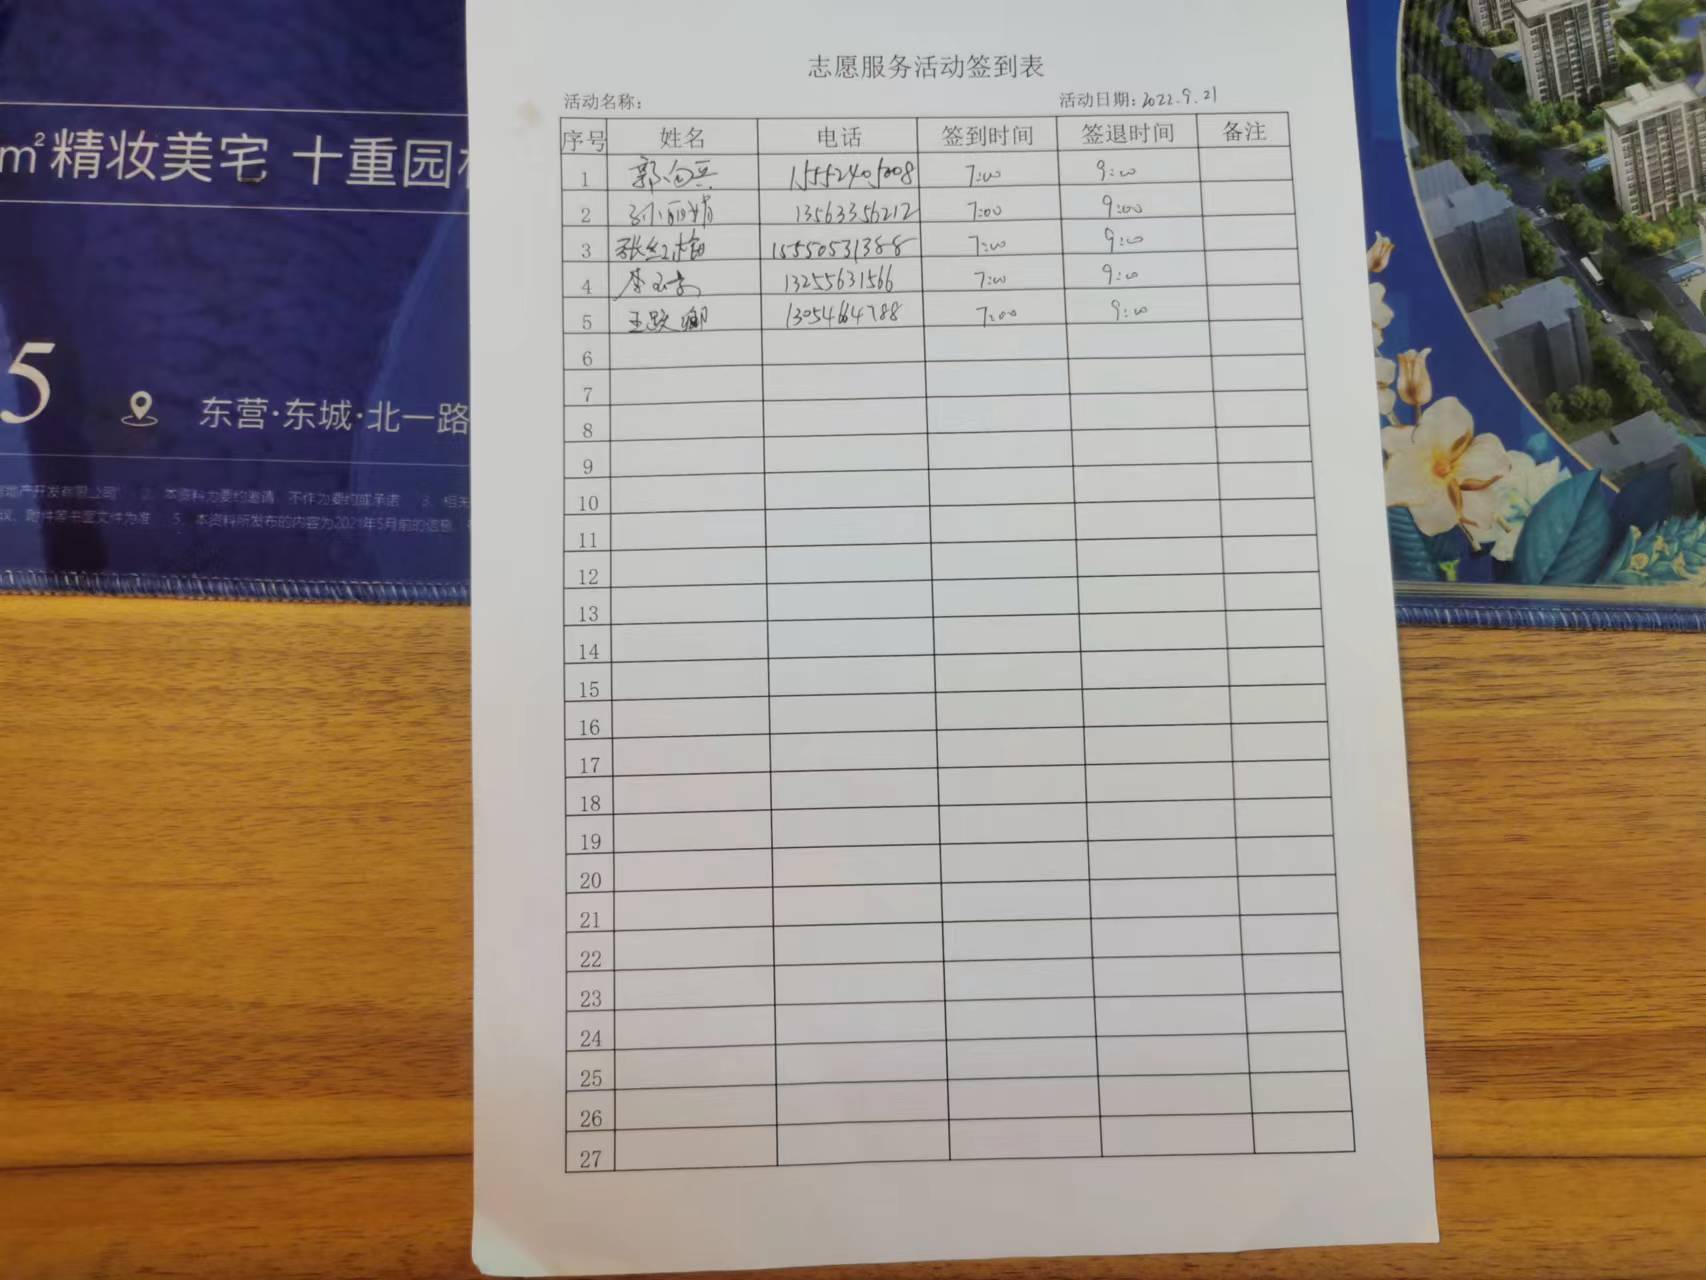 志愿服务活动签到表
活动名称: 活动日期: 2022.9.21
序号 姓名 电话 签到时间 签退时间 备注
1 郭 15552405008 7:00 9:00
2 孙丽娟 13563356212 7:00 9:00
3 张红梅 15550531388 7:00 9:00
4 李玉 13255631566 7:00 9:00
5 王 13054664788 7:00 9:00
6
7
8
9
10
11
12
13
14
15
16
17
18
19
20
21
22
23
24
25
26
27
m²精妆美宅 十重园
5
东营·东城·北一路
地产开发有限公司 2、本资料为要约邀请，不作为要约或承诺 3、相关
议、附件等书面文件为准 5、本资料所发布的内容为2021年5月前的信息，